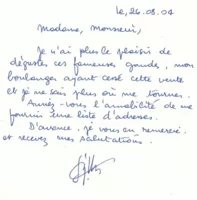 le, 26.08.04
Madame, Monsieur,
Je n'ai plus le plaisir de
déguster ces fameuses gaudes, mon
boulanger ayant cessé cette vente
et je ne sais plus où me tourner.
Auriez-vous l'amabilité de me
fournir une liste d'adresses.
D'avance, je vous en remercie
et recevez mes salutations.